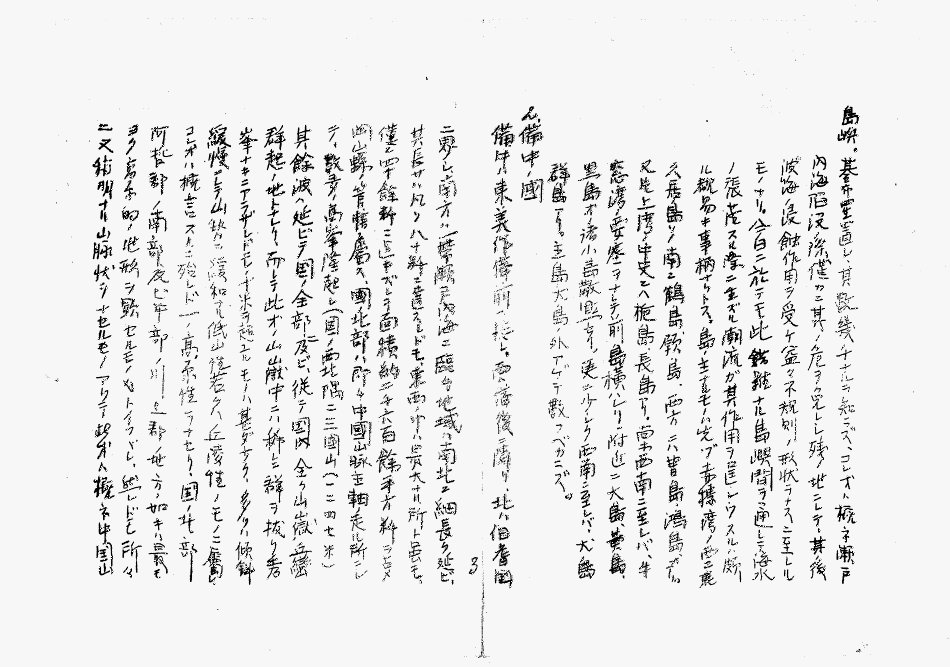 島嶼。碁布星置シ其数幾千ナルヲ知ラズ、コレオハ概子瀬戸
内海陥没際僅カニ其ノ危ヲ免レシ残ノ地ニシテ、其後
波浪ノ浸蝕作用ヲ受ケ益々不規則ノ形状ヲナスニ至レル
モノナリ。今日ニ於テモ此 錯雑ナル島嶼間ヲ通シ海水
ノ張落スル際ニ生ズル潮流ガ其作用ヲ逞シウスルハ頗
ル観易キ事柄ナリトス。島ノ主ナルモノハ先ヅ赤穂湾ノ西ニ
ノ南ニ鶴島、頸島、西方ニハ曽島、鴻島
又児上湾ノ中央ニハ梔島長島アリ。尚西南ニ至レバ、牛
窓湾ノ要塞ヲナシテ前島横ハリ、附近ニ大島、黄島、
黒島オ諸小島散点シ更ニ少シク西南ニ至レバ、犬島
群島アリ。主島犬島ノ外アゲテ数フベカラズ。
2、備中ノ國
備中ハ東美作備前ニ接シ、西ハ備後ニ隣リ、北ハ伯耆國
ニ界シ南方ハ一帯瀬戸内海ニ臨ム地域ハ南北ニ細長ク延ビ、
其長サハ凡ソ八十粁ニ達スレドモ、東西ノ巾ハ最大ナル所ト雖モ、
僅ニ四十餘粁ニ過ギズシテ面積約二千六百餘平方粁ヲ占メ
岡山縣ノ管轄ニ属ス、國北部ハ所々中國山脈主軸ノ走ル所ニシ
テ、数多ノ高峯隆起シ（国ノ西北隅ニ三國山（一二四七米）
其餘波ハ延ビテ国ノ全部ニ及ビ、従テ国内 全ク山嶽丘陵
群起ノ地トナレリ、而シテ此オ山嶽中ニハ稀ニ群ヲ抜ク者
峯ナキニアラザレドモ千米ヲ超ユルモノハ甚ダナク、多クハ傾斜
緩慢ニシテ山勢ノ緩和ナル低山性若クハ丘陵性ノモノニ属
コレオハ概言スルニ殆レド一ノ高原性ヲナセリ、国ノ北部
阿哲郡ノ南部及ビ中部ノ川上郡地方ノ如キハ最モ
ヨク高原的ノ地形ヲ顕セルモノナリトイフベシ、然レドモ所々
ニ又稍明ナル山脈状ヲナセルモノアリテ此オハ概ネ中国山
3